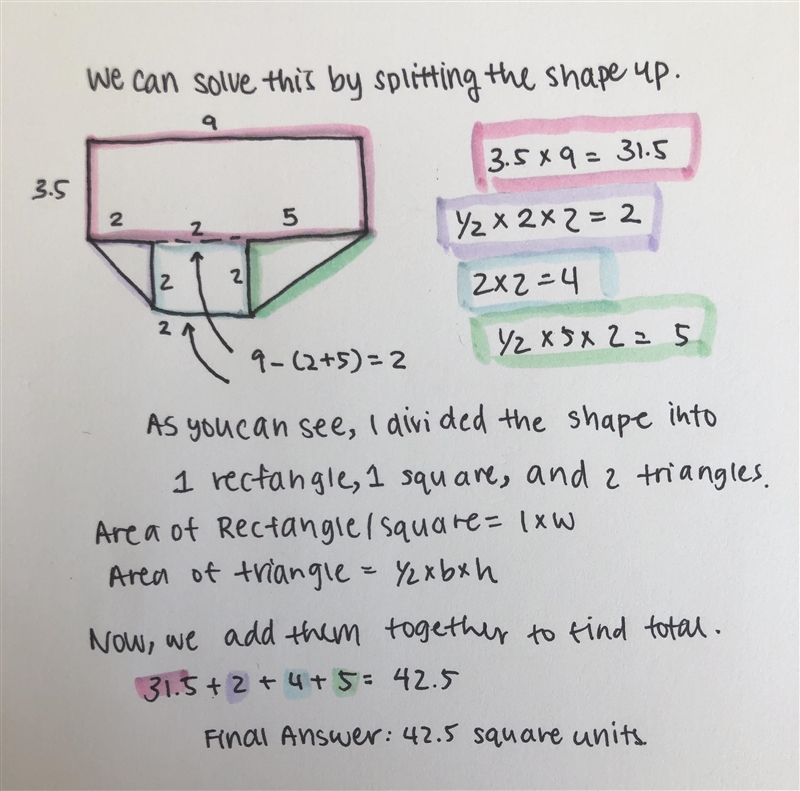 We can solve this by splitting the shape up.
9
3.5
2
2
5
2
2
2
9-(2+5)=2
3.5 x 9 = 31.5
1/2 x 2 x 2 = 2
2x2=4
1/2 x 5 x 2 = 5
As you can see, I divided the shape into
1 rectangle, 1 square, and 2 triangles.
Area of Rectangle/square = l x w
Area of triangle = 1/2 x b x h
Now, we add them together to find total.
31.5 + 2 + 4 + 5 = 42.5
Final Answer: 42.5 square units